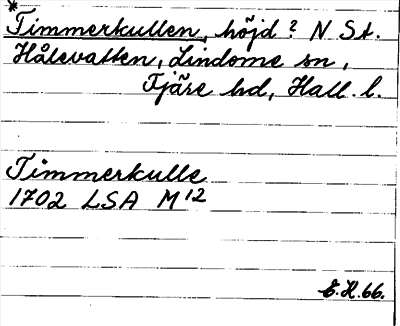 *Timmerkullen, höjd? N St.
Hålevatten, Lindome sn,
Fjäre hd, Hall. l.
Timmerkulle
1702 LSA M12
E.H.66.